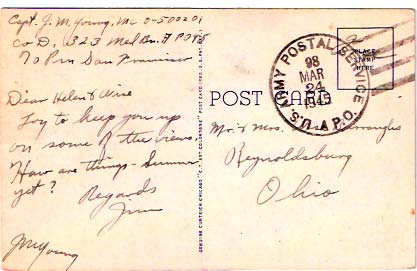 Capt. J. M. Young, MC O-500201
Co D, 323 Med Bn. APO 98
% Pm San Francisco
Dear Helen &
Try to keep you up
on some of the views.
How are things - Summer
yet?
Regards
Jim
JMYoung
POST CARD
PLACE
STAMP
HERE
U.S. ARMY POSTAL SERVICE
A.P.O.
98
MAR
24
1945
Mr. & Mrs.
Reynoldsburg
Ohio